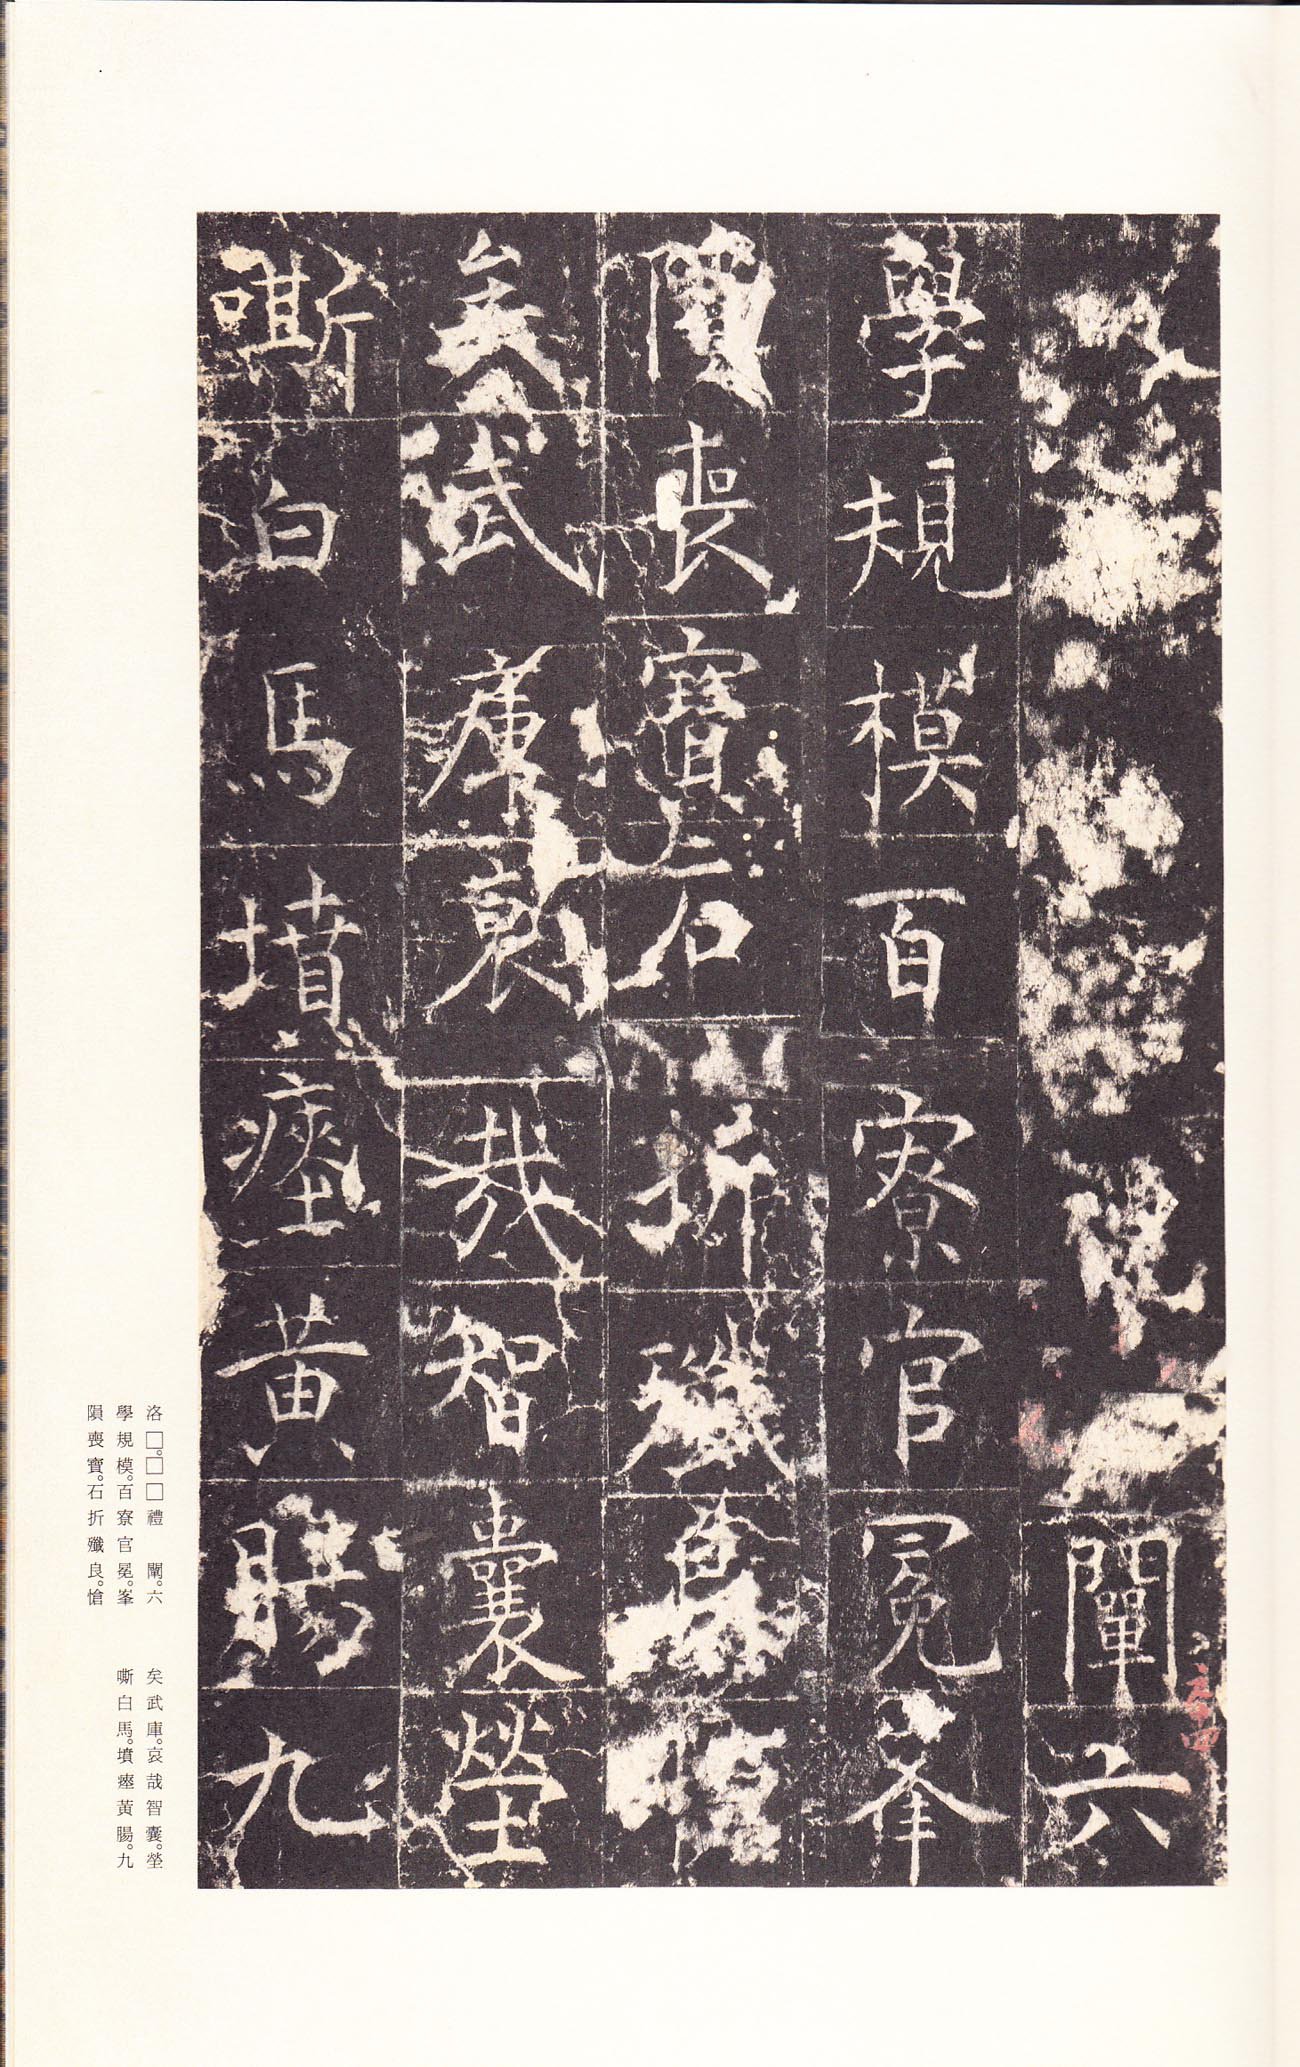 禮闈六
學規模百寮官冕峯
隕喪寶石折殲良愴
矣武庫哀哉智囊塋
嘶白馬墳瘞黃腸九
洛□。□□禮　闈。六
學規模。百寮官冕。峯
隕喪寶。石折殲良。愴
矣武庫。哀哉智囊。塋
嘶白馬。墳瘞黃腸。九